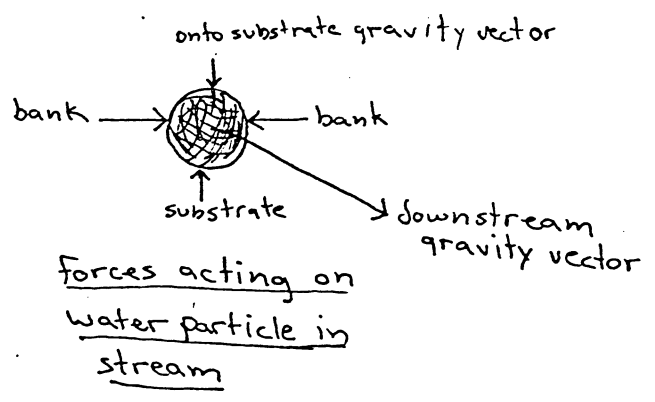 onto substrate gravity vector
bank
bank
substrate
downstream
gravity vector
forces acting on
water particle in
stream